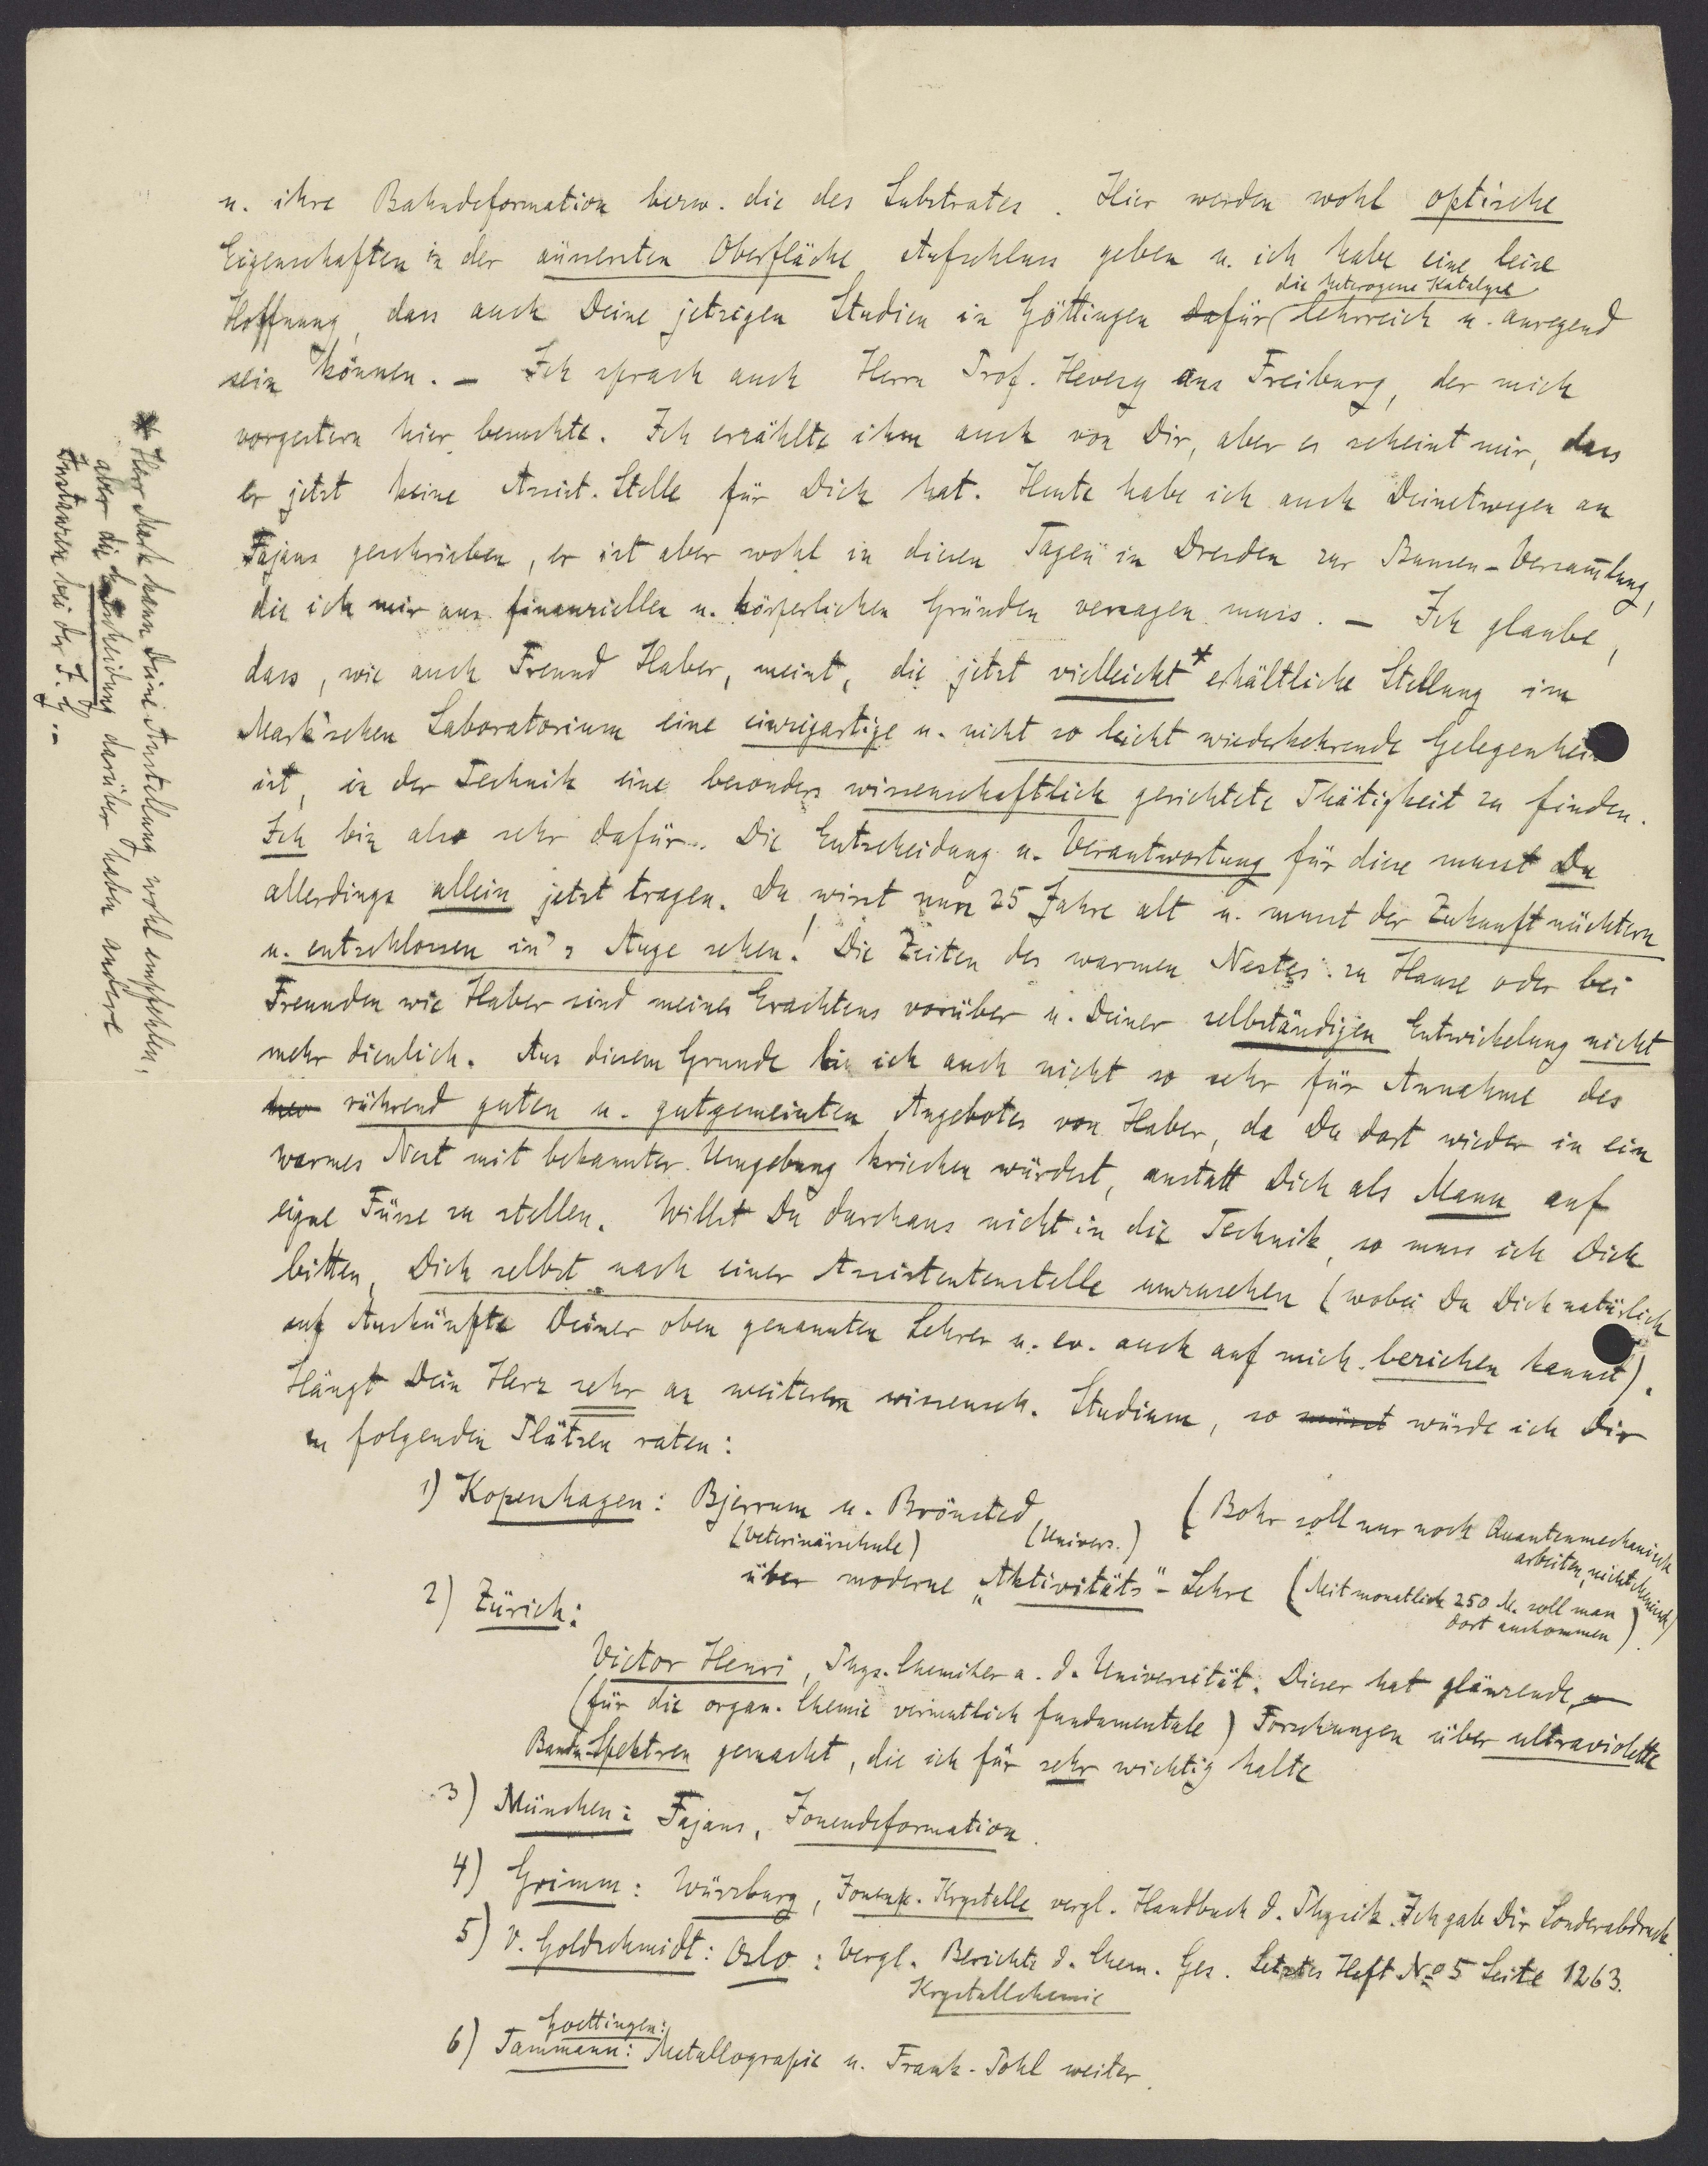 u. ihre Bahndeformation bezw. die des Substrates. Hier werden wohl optische
Eigenschaften in der äussersten Oberfläche Aufschluss geben u. ich habe eine leise
die heterogene Katalyse
Hoffnung, dass auch Deine jetzigen Studien in Göttingen dafür lehrreich u. anregend
sein können. – Ich sprach auch Herrn Prof. Hevesy aus Freiburg, der mich
vorgestern hier besuchte. Ich erzählte ihm auch von Dir, aber es scheint mir, dass
er jetzt keine Assist. Stelle für Dich hat. Heute habe ich auch Deinetwegen an
Fajans geschrieben, er ist aber wohl in diesen Tagen in Dresden zur Bunsen-Versammlung,
die ich mir aus finanziellen u. körperlichen Gründen versagen muss. – Ich glaube,
dass, wie auch Freund Haber, meint, die jetzt vielleicht* erhältliche Stellung im
Mark'schen Laboratorium eine einzigartige u. nicht so leicht wiederkehrende Gelegenheit
ist, in der Technik eine besonders wissenschaftlich gerichtete Thätigkeit zu finden.
Ich bin also sehr dafür. Die Entscheidung u. Verantwortung für diese musst Du
allerdings allein jetzt tragen. Du wirst nun 25 Jahre alt u. musst der Zukunft nüchtern
u. entschlossen in's Auge sehen! Die Zeiten des warmen Nestes zu Hause oder bei
Freunden wie Haber sind meines Erachtens vorüber u. Deiner selbständigen Entwickelung nicht
mehr dienlich. Aus diesem Grunde bin ich auch nicht so sehr für Annahme des
rührend guten u. gutgemeinten Angebotes von Haber, da Du dort wieder in ein
warmes Nest mit bekannter Umgebung kriechen würdest, anstatt Dich als Mann auf
eigne Füsse zu stellen. Willst Du durchaus nicht in die Technik, so muss ich Dich
bitten, Dich selbst nach einer Assistentenstelle umzusehen (wobei Du Dich natürlich
auf Auskünfte Deiner oben genannten Lehrer u. ev. auch auf mich beziehen kannst).
Hängt Dein Herz sehr an weiterem wissensch. Studium, so müsst würde ich Dir
zu folgenden Plätzen raten:
1) Kopenhagen: Bjerrum u. Brönsted (Bohr soll nur noch Quantenmechanisch
(Veterinärschule) (Univers.) arbeiten, nicht chemisch)
über moderne „Aktivitäts"-Lehre (Mit monatlich 250 M. soll man
dort auskommen)
2) Zürich:
Victor Henri, Phys. Chemiker a. d. Universität. Dieser hat glänzende
(für die organ. Chemie vermutlich fundamentale) Forschungen über ultraviolette
Banden-Spektren gemacht, die ich für sehr wichtig halte
3) München: Fajans, Ionendeformation.
4) Grimm: Würzburg, Ionenk. Krystalle vergl. Handbuch d. Physik. Ich gab Dir Sonderabdruck.
5) V. Goldschmidt: Oslo: Vergl. Berichte d. Chem. Ges. Letztes Heft No 5 Seite 1263.
Krystallchemie
Goettingen:
6) Tammann: Metallografie u. Frank-Pohl weiter.
* Herr Mark kann Deine Anstellung wohl empfehlen,
aber die Entscheidung darüber haben andere
Instanzen bei der I. G. –